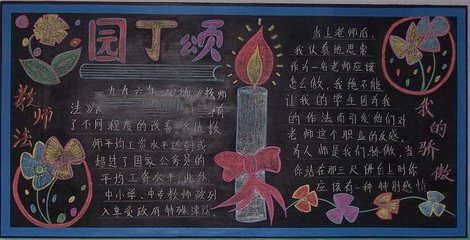 园丁颂
教师法
一九九六年实施《教师
法》
了不同程度的改善
师平均工资水平达到或
超过了国家公务员的
平均工资水平。此外,
中小学、中专教师被列
入享受政府特殊津贴
当上老师后,
我认真地思索
作为一名老师应该
怎么做,我绝不能
让我的学生因为我
的作法而引发他们对
老师这个职业的反感。
为人师是我们骄傲,当
你站在那三尺讲台上时你
应该有一种特别感情
我的骄傲